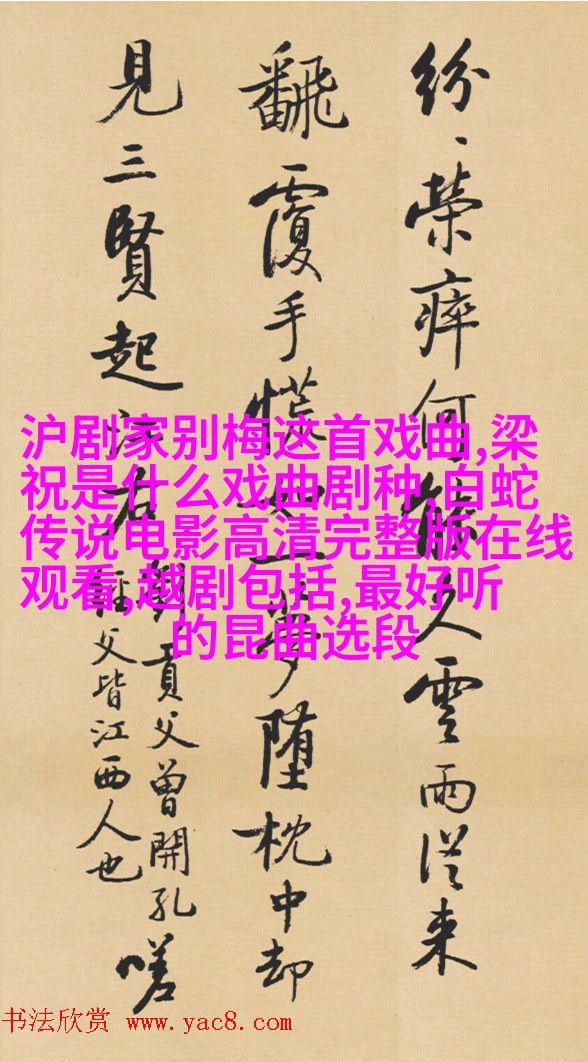 沪剧家别梅这首戏曲,梁
祝是什么戏曲剧种,白蛇
传说电影高清完整版在线
观看,越剧包括,最好听
的昆曲选段
紛、榮瘁何能久雲雨從来
飜覆手慌如一夢堕枕中却
見三賢起江右
貢父曾開孔
經父皆江西人也
嗟
书法欣赏 www.yac8.com